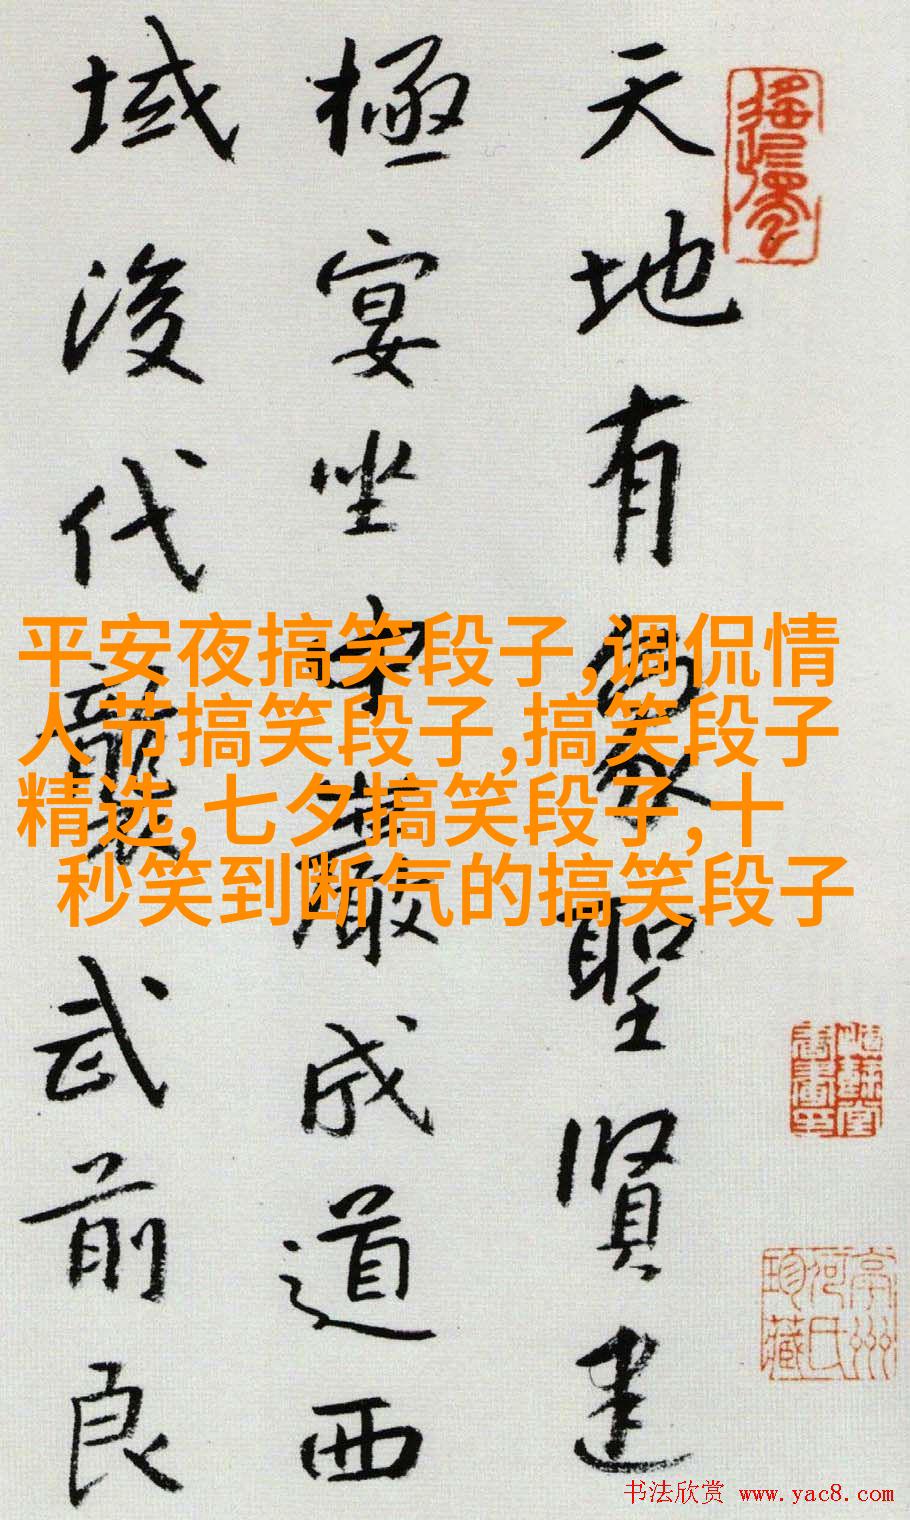 天地有聖賢建
極宴坐中巖成道西
域後代襲武前良
平安夜搞笑段子,调侃情
人节搞笑段子,搞笑段子
精选,七夕搞笑段子,十
秒笑到断气的搞笑段子
亭州
何氏
珍藏
书法欣赏 www.yac8.com